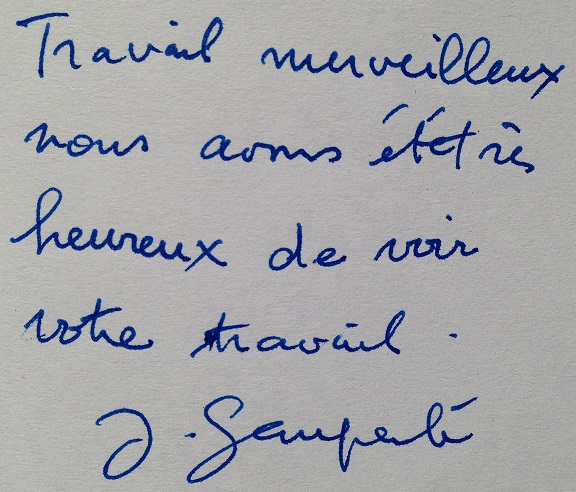 Travail merveilleux
nous avons été très
heureux de voir
votre travail.
J.